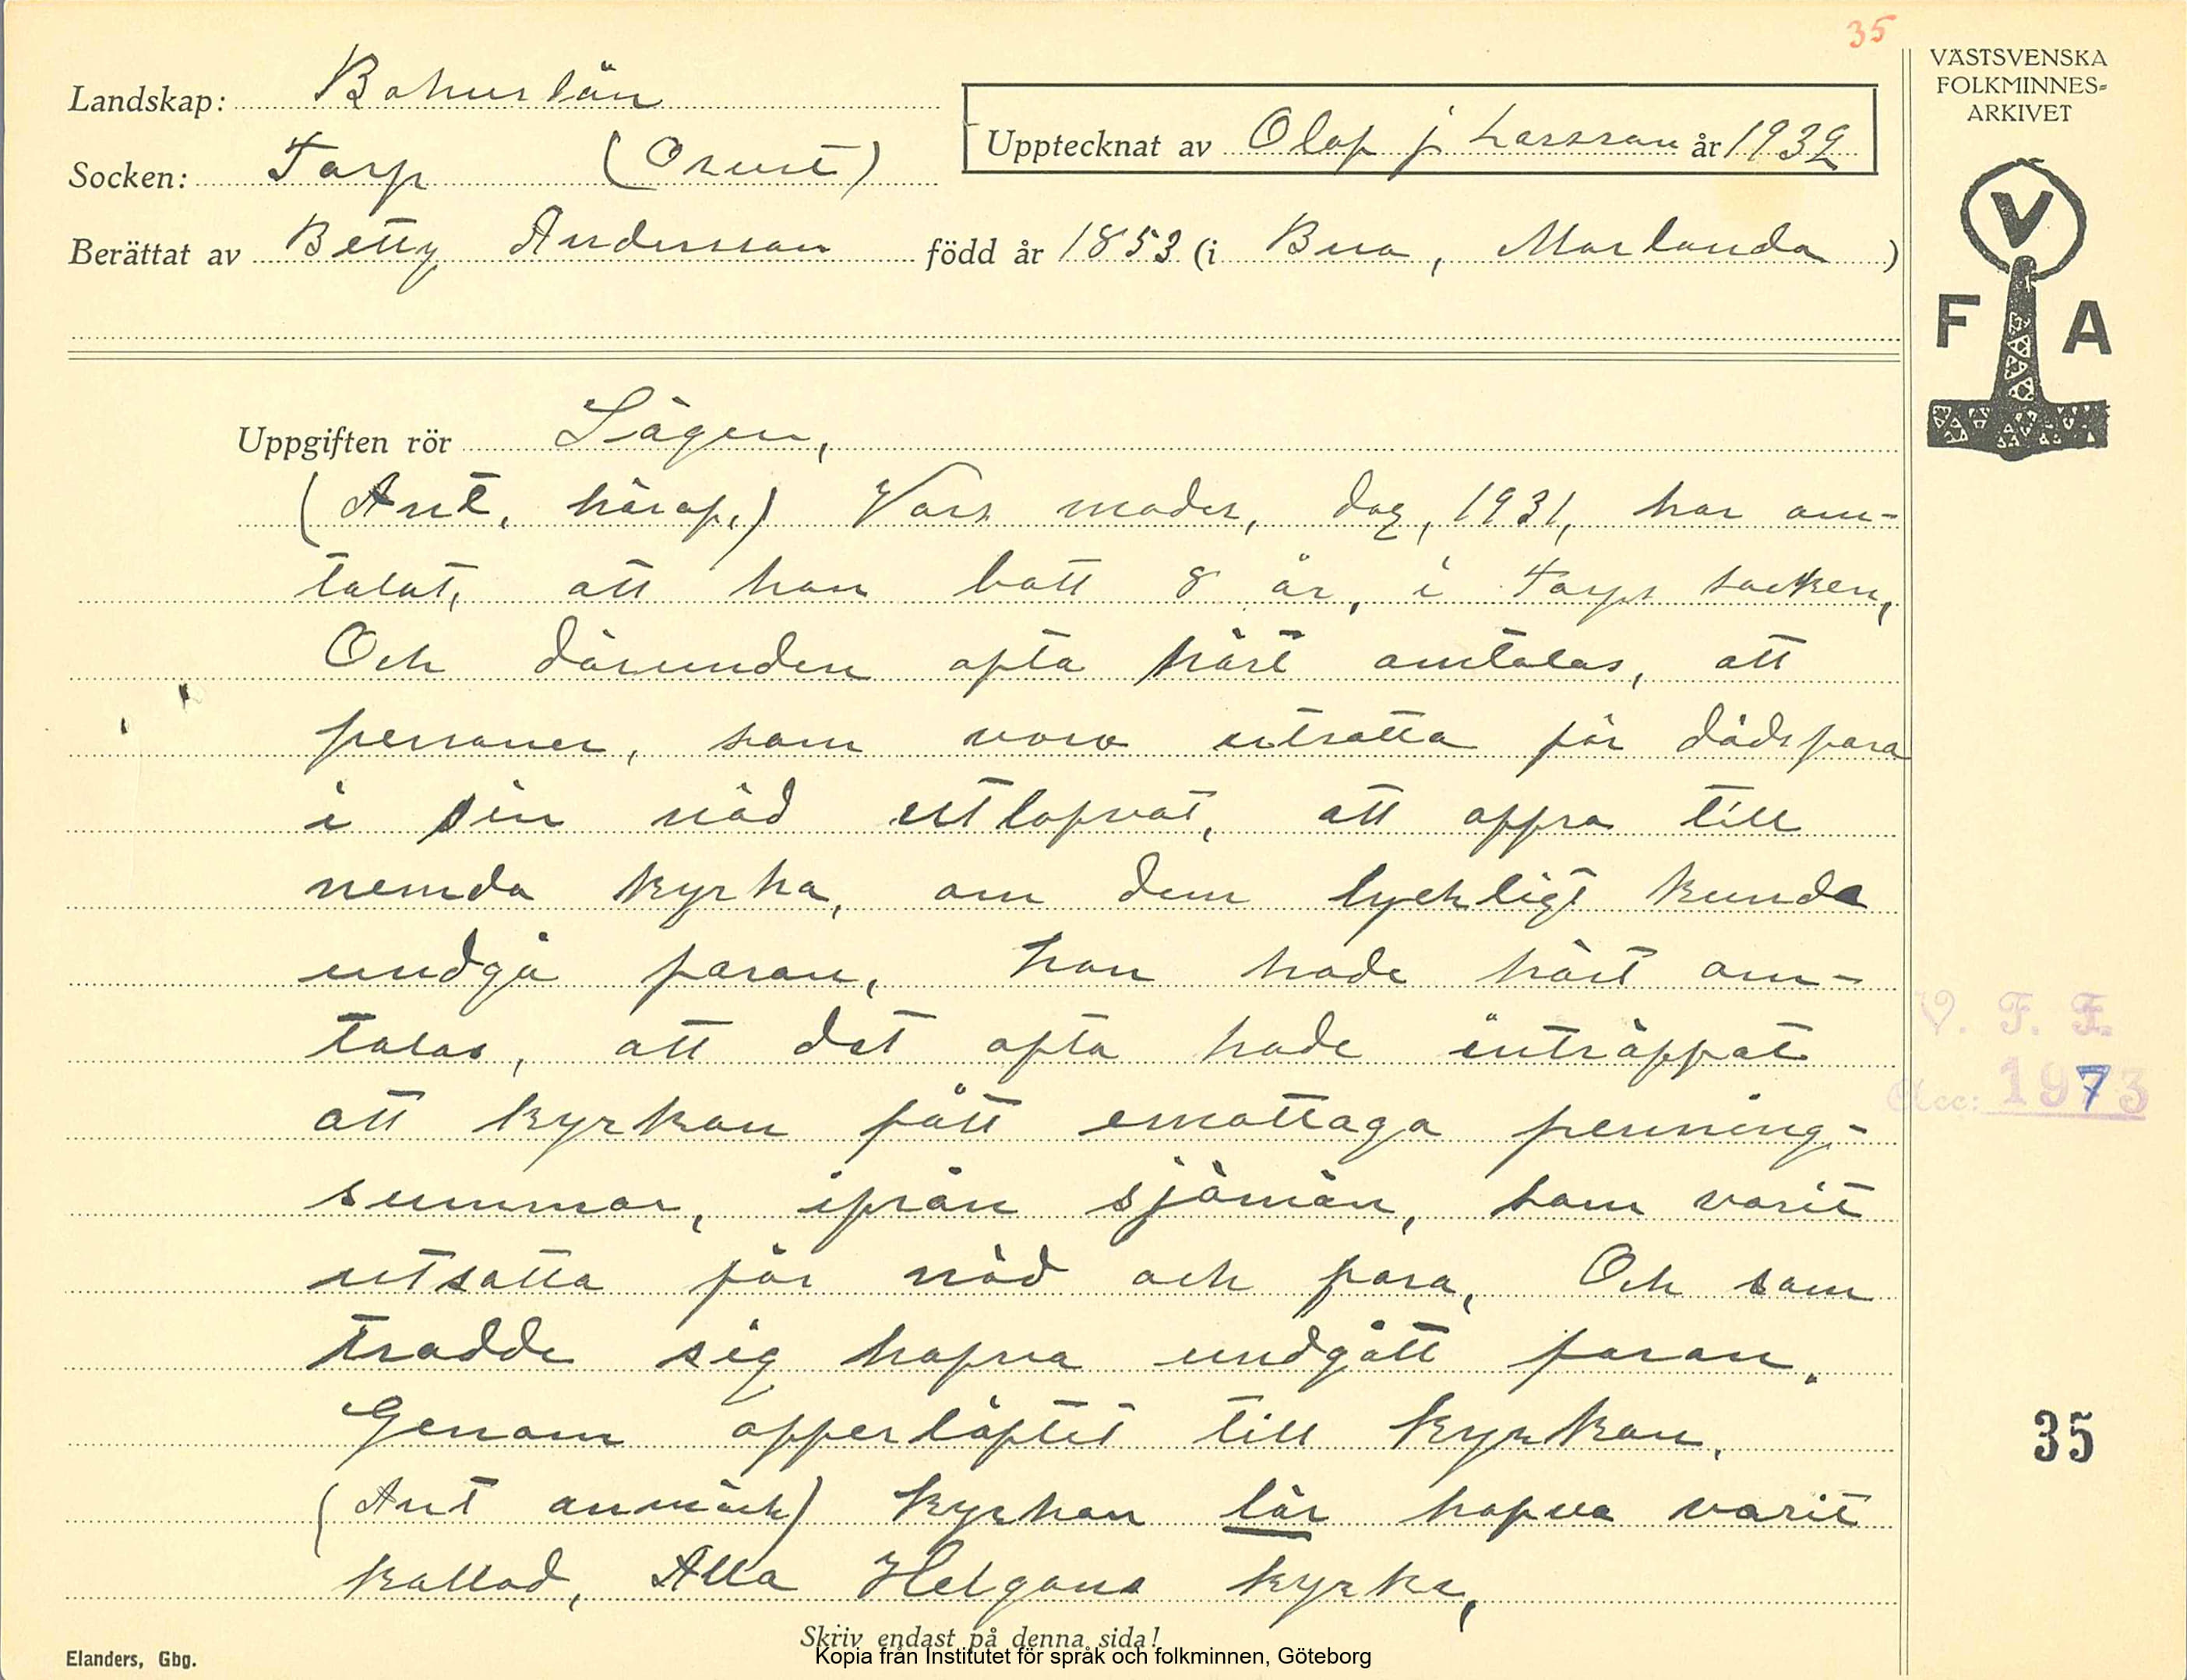 35
VÄSTSVENSKA
FOLKMINNES-
ARKIVET
Landskap: Bohuslän
Upptecknat av Olof j Larsson år 1932
Socken: Torp (Orust)
Berättat av Betty Andersson född år 1853 (i Bua, Morlanda)
V
F A
Uppgiften rör Sägen,
(Ant. häraf,) Vars moder, dog, 1931, har om-
talat, att hon bott 8 år, i Torps socken,
Och därunder ofta hört omtalas, att
personer, som voro utsatta för dödsfara
i sin nöd utlofvat, att offra till
nemda kyrka, om dem lyckligt kunde
undgå faran, hon hade hört om-
talas, att det ofta hade inträffat
att kyrkan fått emottaga penning-
summor, ifrån sjömän, som varit
utsatta för nöd och fara, Och som
trodde sig hafva undgått faran.
Genom offerlöftet till kyrkan.
(Ant anmärk) kyrkan lär hafva varit
kallad, Alla Helgons kyrka,
V. F. F.
Acc: 1973
35
Skriv endast på denna sida!
Elanders, Gbg.
Kopia från Institutet för språk och folkminnen, Göteborg